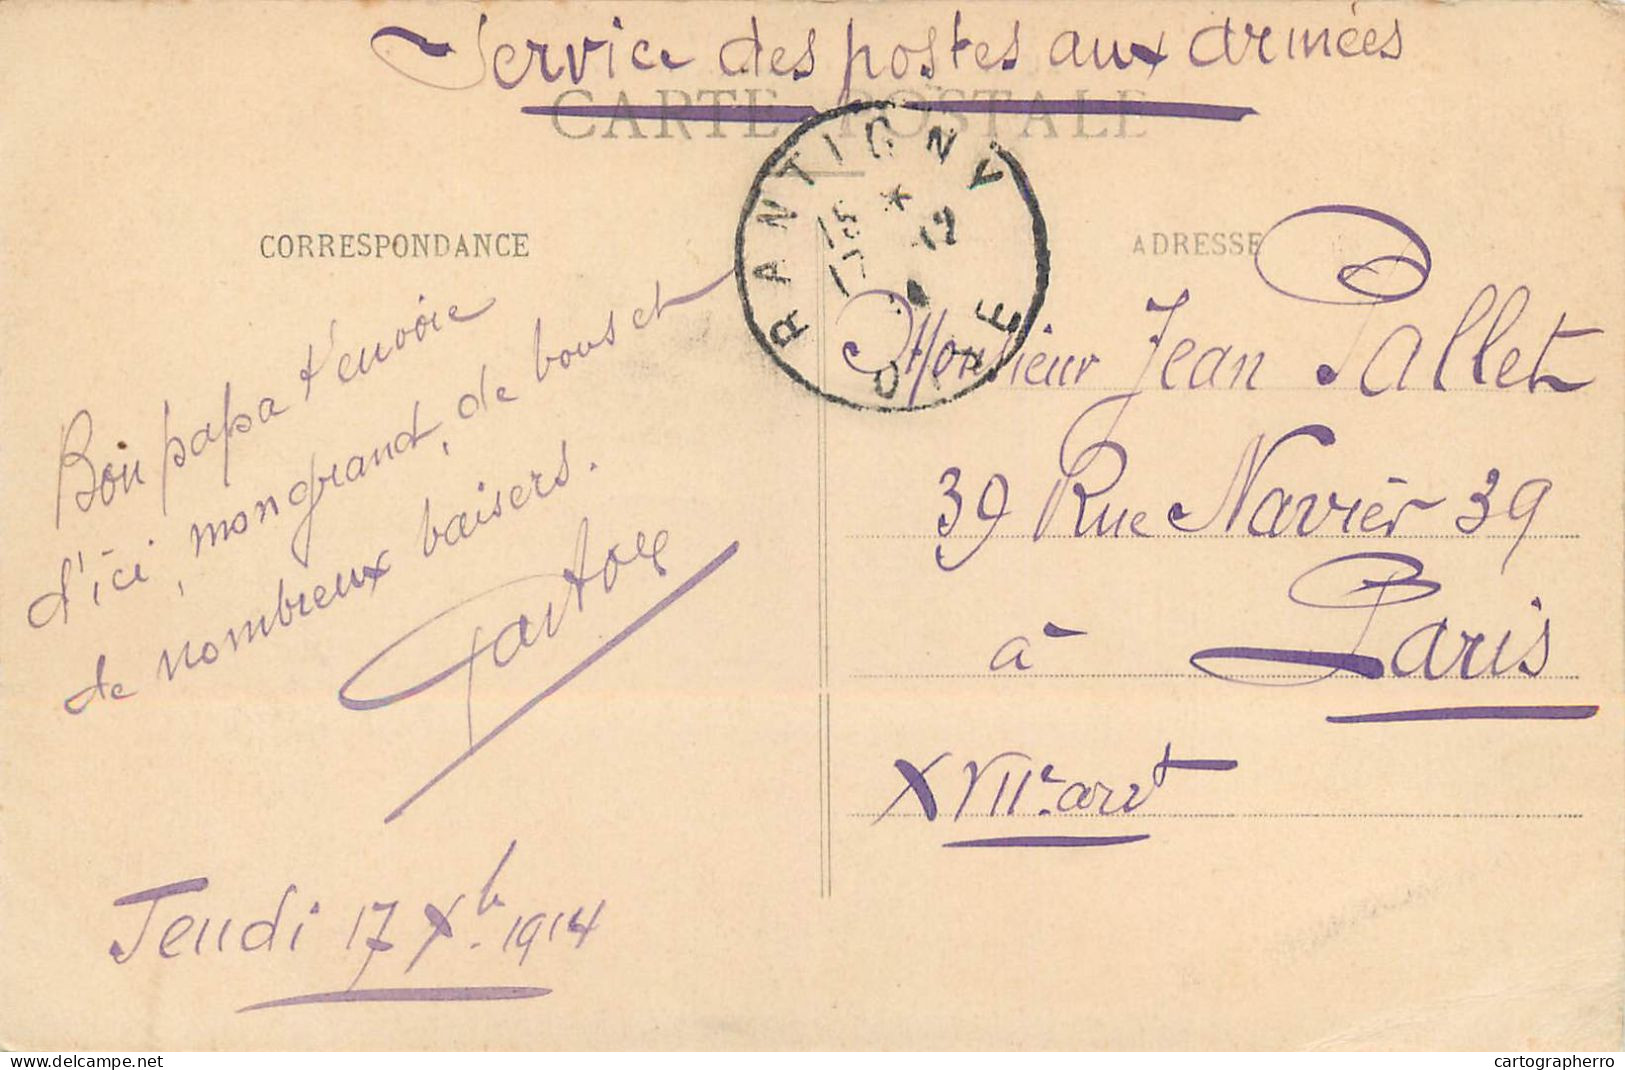 Service des postes aux armées
CARTE POSTALE
RANTIGNY
15 * 12
17
OISE
CORRESPONDANCE
ADRESSE
Bon papa t'envoie
d'ici, mon grand, de bons et
de nombreux baisers.
Gaston
Jeudi 17 Xb. 1914
Monsieur Jean Pallet
39 Rue Navier 39
à Paris
XVIIe arrt
https://www.delcampe.net
cartographerro